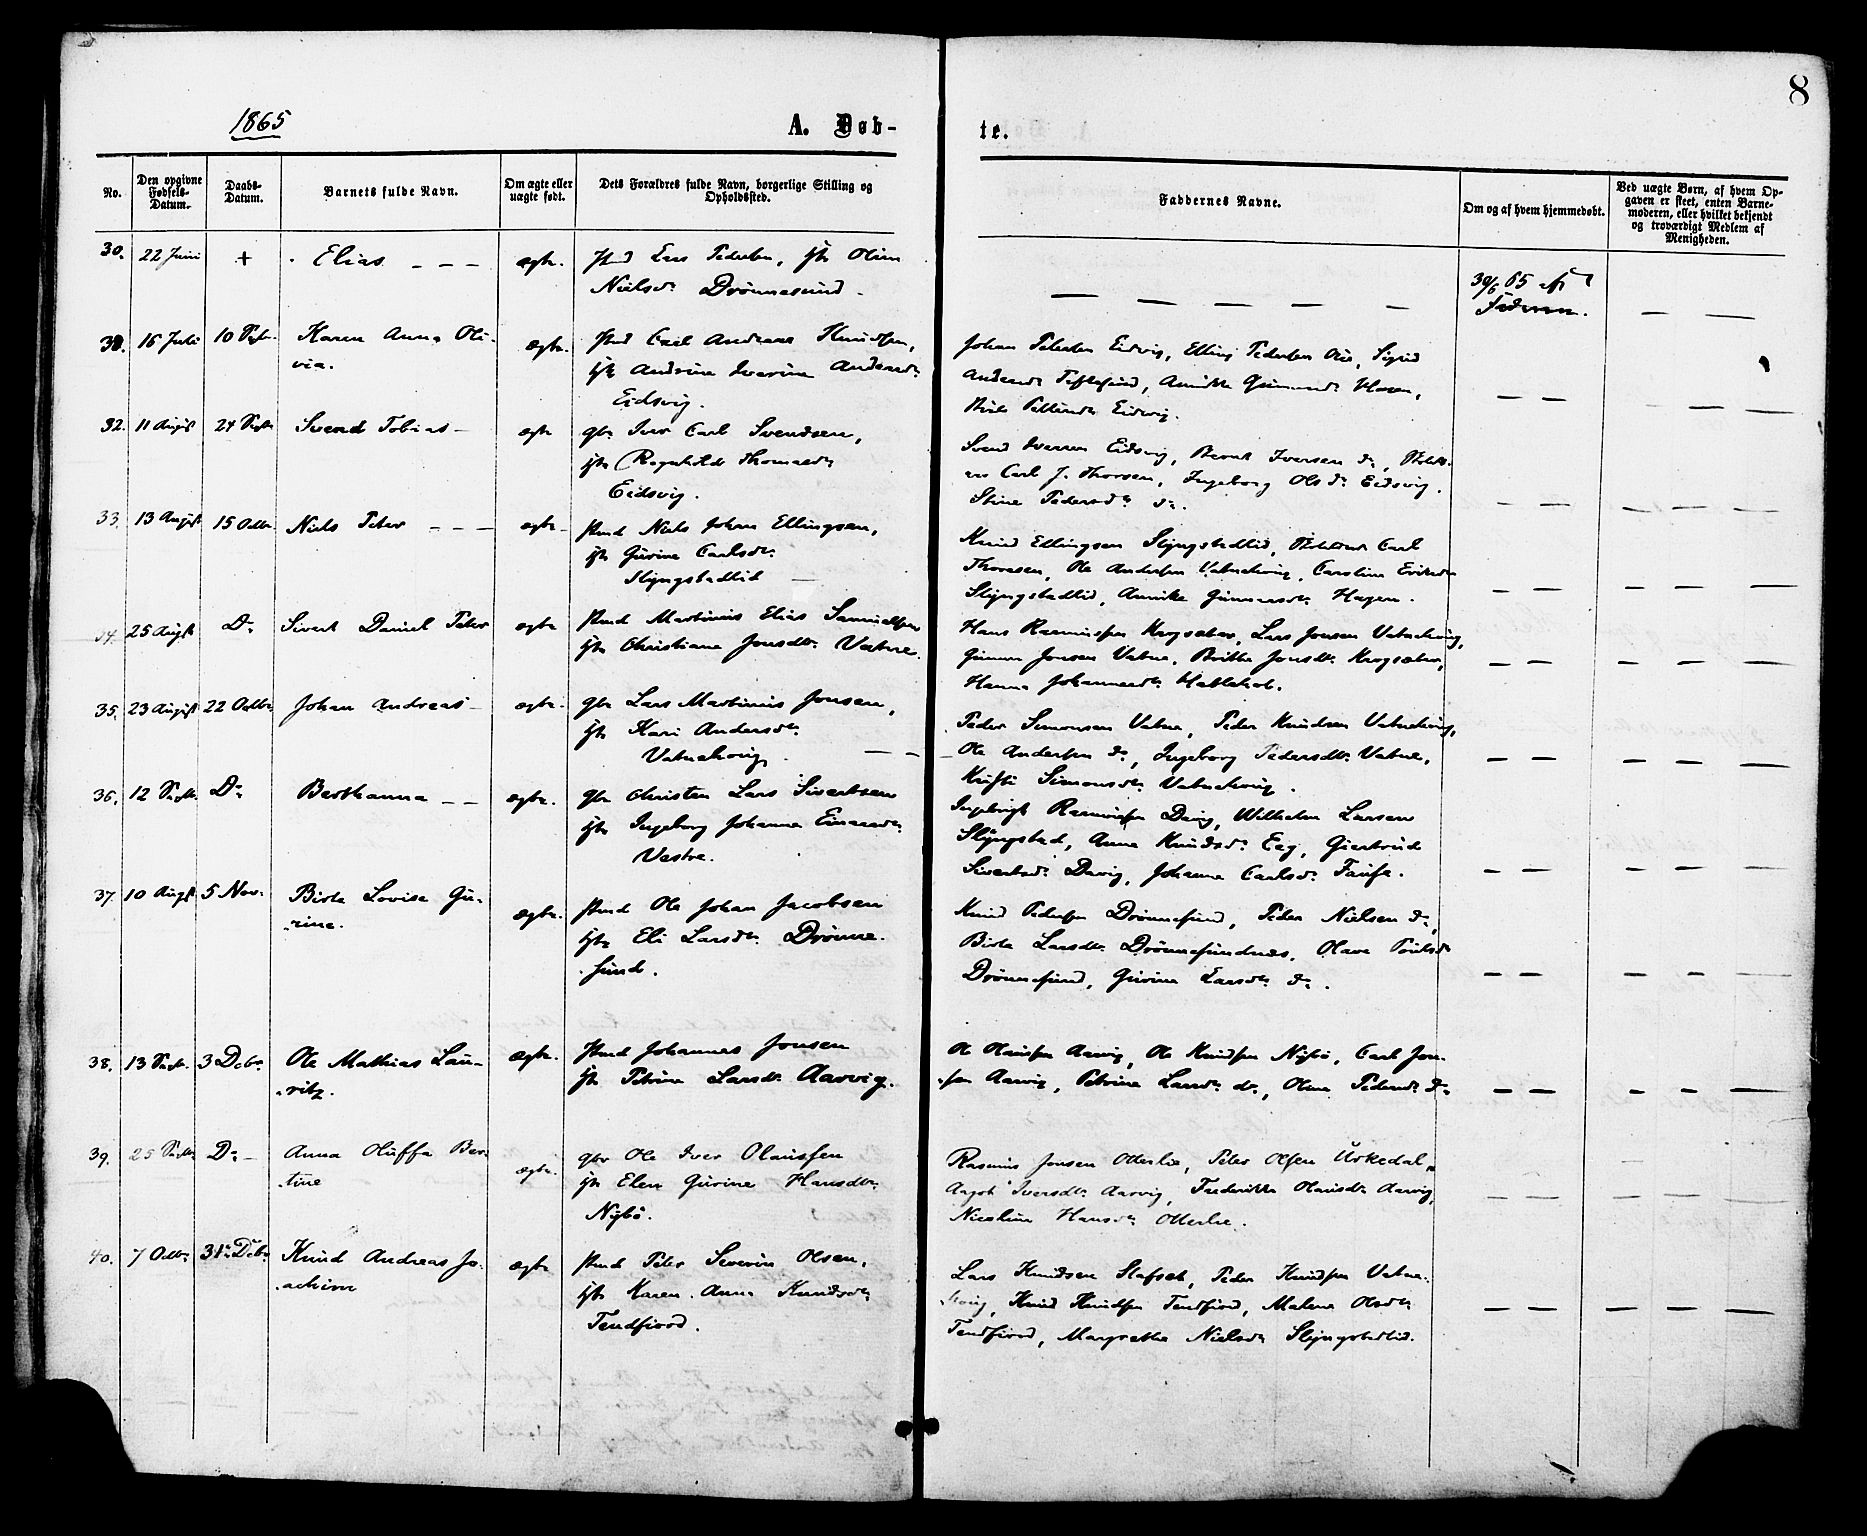 8
1865
A. Døb-
te.
No.
Den opgivne Fødsels-Datum.
Daabs-Datum.
Barnets fulde Navn.
Om ægte eller uægte født.
Dets Forældres fulde Navn, borgerlige Stilling og Opholdssted.
Faddernes Navne.
Om og af hvem hjemmedøbt.
Ved uægte Børn, af hvem Opgaven er skeet, enten Barnemoderen, eller hvilket bekjendt og troværdigt Medlem af Menigheden.
30. 22 Juni + Elias - - - ægte. Lars Pedersen,
Nielsdr Drönnesund.
30/6 65 af
Faderen.
16 Juli 10 Septr. Karen Anna Oli-
via.
ægte. Carl Andreas Knudsen,
Andrine Iverine Andersdr
Eidsvig.
Johan Petersen Eidsvig, Elling Pedersen Sigrid
Andersdr Annikke Gunnarsdr Hagen,
Eidsvig.
32. 11 August 24 Septr Svend Tobias - ægte gbr. Iver Carl Svendsen,
Ragnhilde Thomasdr
Eidsvig.
Svend Iversen Eidsvig, Bernt Iversen do,
Carl J. Thoresen, Ingeborg Olsdr Eidsvig.
Stine Pedersdr do.
33. 13 August 15 Octbr Niels Peter - - - ægte Niels Johan Ellingsen,
Gurine Carlsdr
Slyngstadlid
Knud Ellingsen Slyngstadlid, Carl
Thoresen, Ole Andersen Vatnehvig, Caroline Eriksdr
Slyngstadlid, Annike Gunnarsdr Hagen.
34. 25 Augst Do Sivert Daniel Peter ægte Martinus Elias Samuelsen
Christiane Jonsdr. Vatne.
Hans Rasmussen Krogsæter, Lars Jonsen Vatnehvig,
Gunnar Jonsen Vatne, Britha Jonsdr. Krogsæter,
Hanna Johannesdr.
35. 23 August 22 Octbr Johan Andreas - ægte. gbr Lars Martinus Jonsen,
Kari Andersdr.
Vatnehvig.
Peder Simonsen Vatne, Peder Knudsen Vatnehvig,
Ole Andersen do, Ingeborg Pedersdr. Vatne,
Simonsdr Vatnehvig.
36. 12 Septr. Do Berthanna - - ægte. gbr Christen Lars Sivertsen
Ingeborg Johanna Einarsdr.
Vestre.
Ingebrigt Rasmussen Davig, Wilhelm Larsen
Slyngstad, Anna Knudsdr. Giertrud
Sivertsdr. Davig, Johanne Carlsdr.
37. 10 Augst 5 Nov. Birte Lovise Gu-
rine.
ægte. Ole Johan Jacobsen
Eli Larsdr. Drönne-
sund.
Knud Pedersen Drönnesund, Peder Nielsen do,
Birte Larsdr. Drönnesundnes, Olave
Drönnesund, Gurine Larsdr. do.
38. 13 Septr. 3 Decbr. Ole Mathias Lau-
ritz.
ægte. Johannes Jonsen
Petrine Larsdr. Aarvig.
Ole Olaussen Aarvig, Ole Knudsen Nybö, Carl Jon-
sen Aarvig, Petrine Larsdr. do., Oline Pedersdr. do
39. 25 Septr Do - Anna Oluffa Ber-
tine
ægte. gbr Ole Iver Olaussen
Elen Gurine Hansdr.
Nybö.
Rasmus Jonsen Otterlei, Peter Olsen Urkedal,
Iversdr. Aarvig, Frederikke Olausdr. Aarvig,
Nicoline Hansdr Otterlei.
40. 7 Octbr 31 Decbr Knud Andreas Jo-
achim
ægte Peter Severin Olsen,
Karen Anna Knudsdr
Tendfiord.
Lars Knudsen Peder Knudsen Vatne-
hvig, Knud Knudsen Tendfiord, Malene Olsdr
Tendfiord, Margrethe Nielsdr Slyngstadlid.